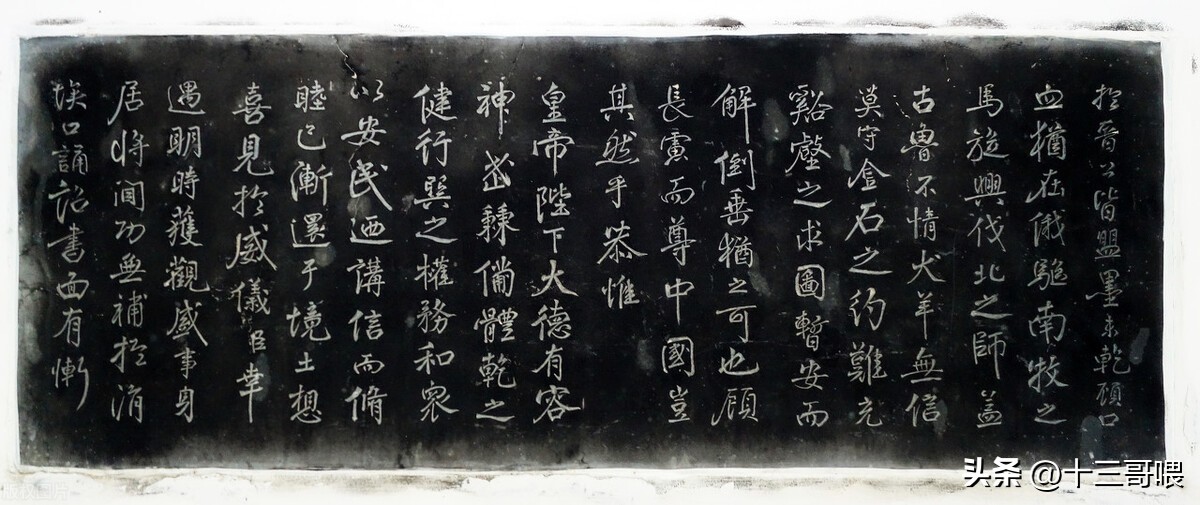 扵晉公皆盟墨未乾顧口
血猶在俄驅南牧之
馬旋興伐北之師盖
古魯不情犬羊無信
莫守金石之約難充
谿壑之求圖暫安而
解倒垂猶之可也顧
長慮而尊中國豈
其然乎恭惟
皇帝陛下大德有容
神武備體乾之
健行巽之權務和衆
以安民迺講信而脩
睦已漸還于境土想
喜見扵威儀臣幸
遇明時獲觀盛事身
居將閫功無補扵涓
埃口誦詔書面有慚
头条 @十三哥喂